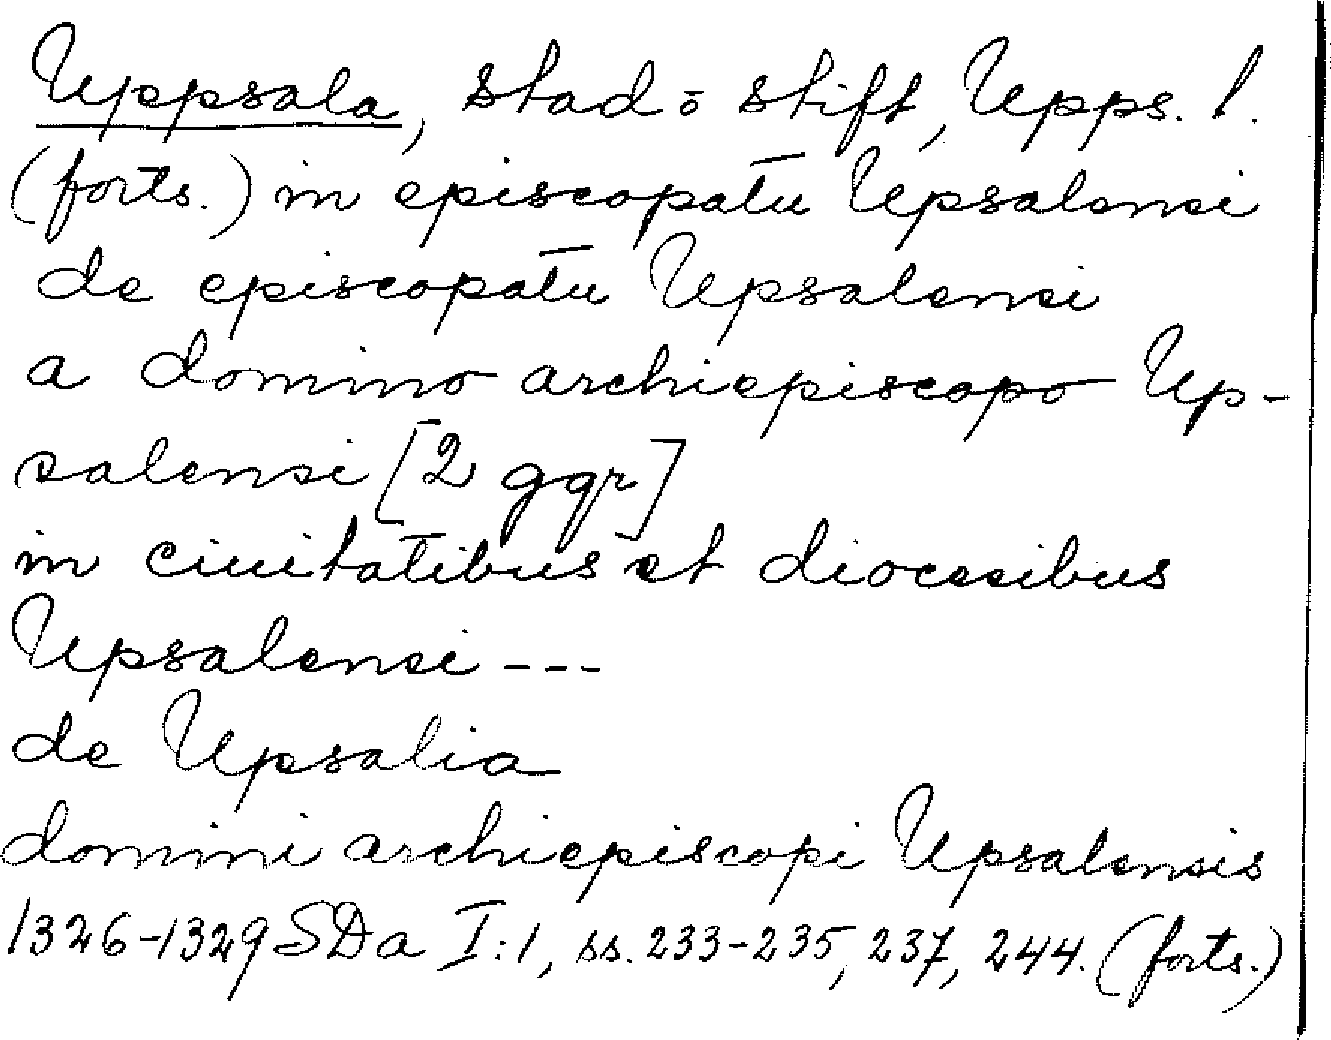 Uppsala, stad o stift, Upps. l.
(forts.) in episcopatu Upsalensi
de episcopatu Upsalensi
a domino archiepiscopo Up-
salensi [2 ggr]
in ciuitatibus et diocesibus
Upsalensi ---
de Upsalia
domini archiepiscopi Upsalensis
1326-1329 SDa I:1, ss. 233-235, 237, 244. (forts.)